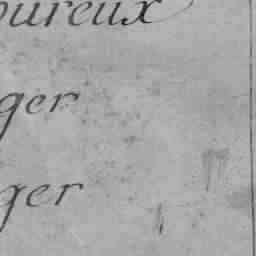 oureux
ger
ger